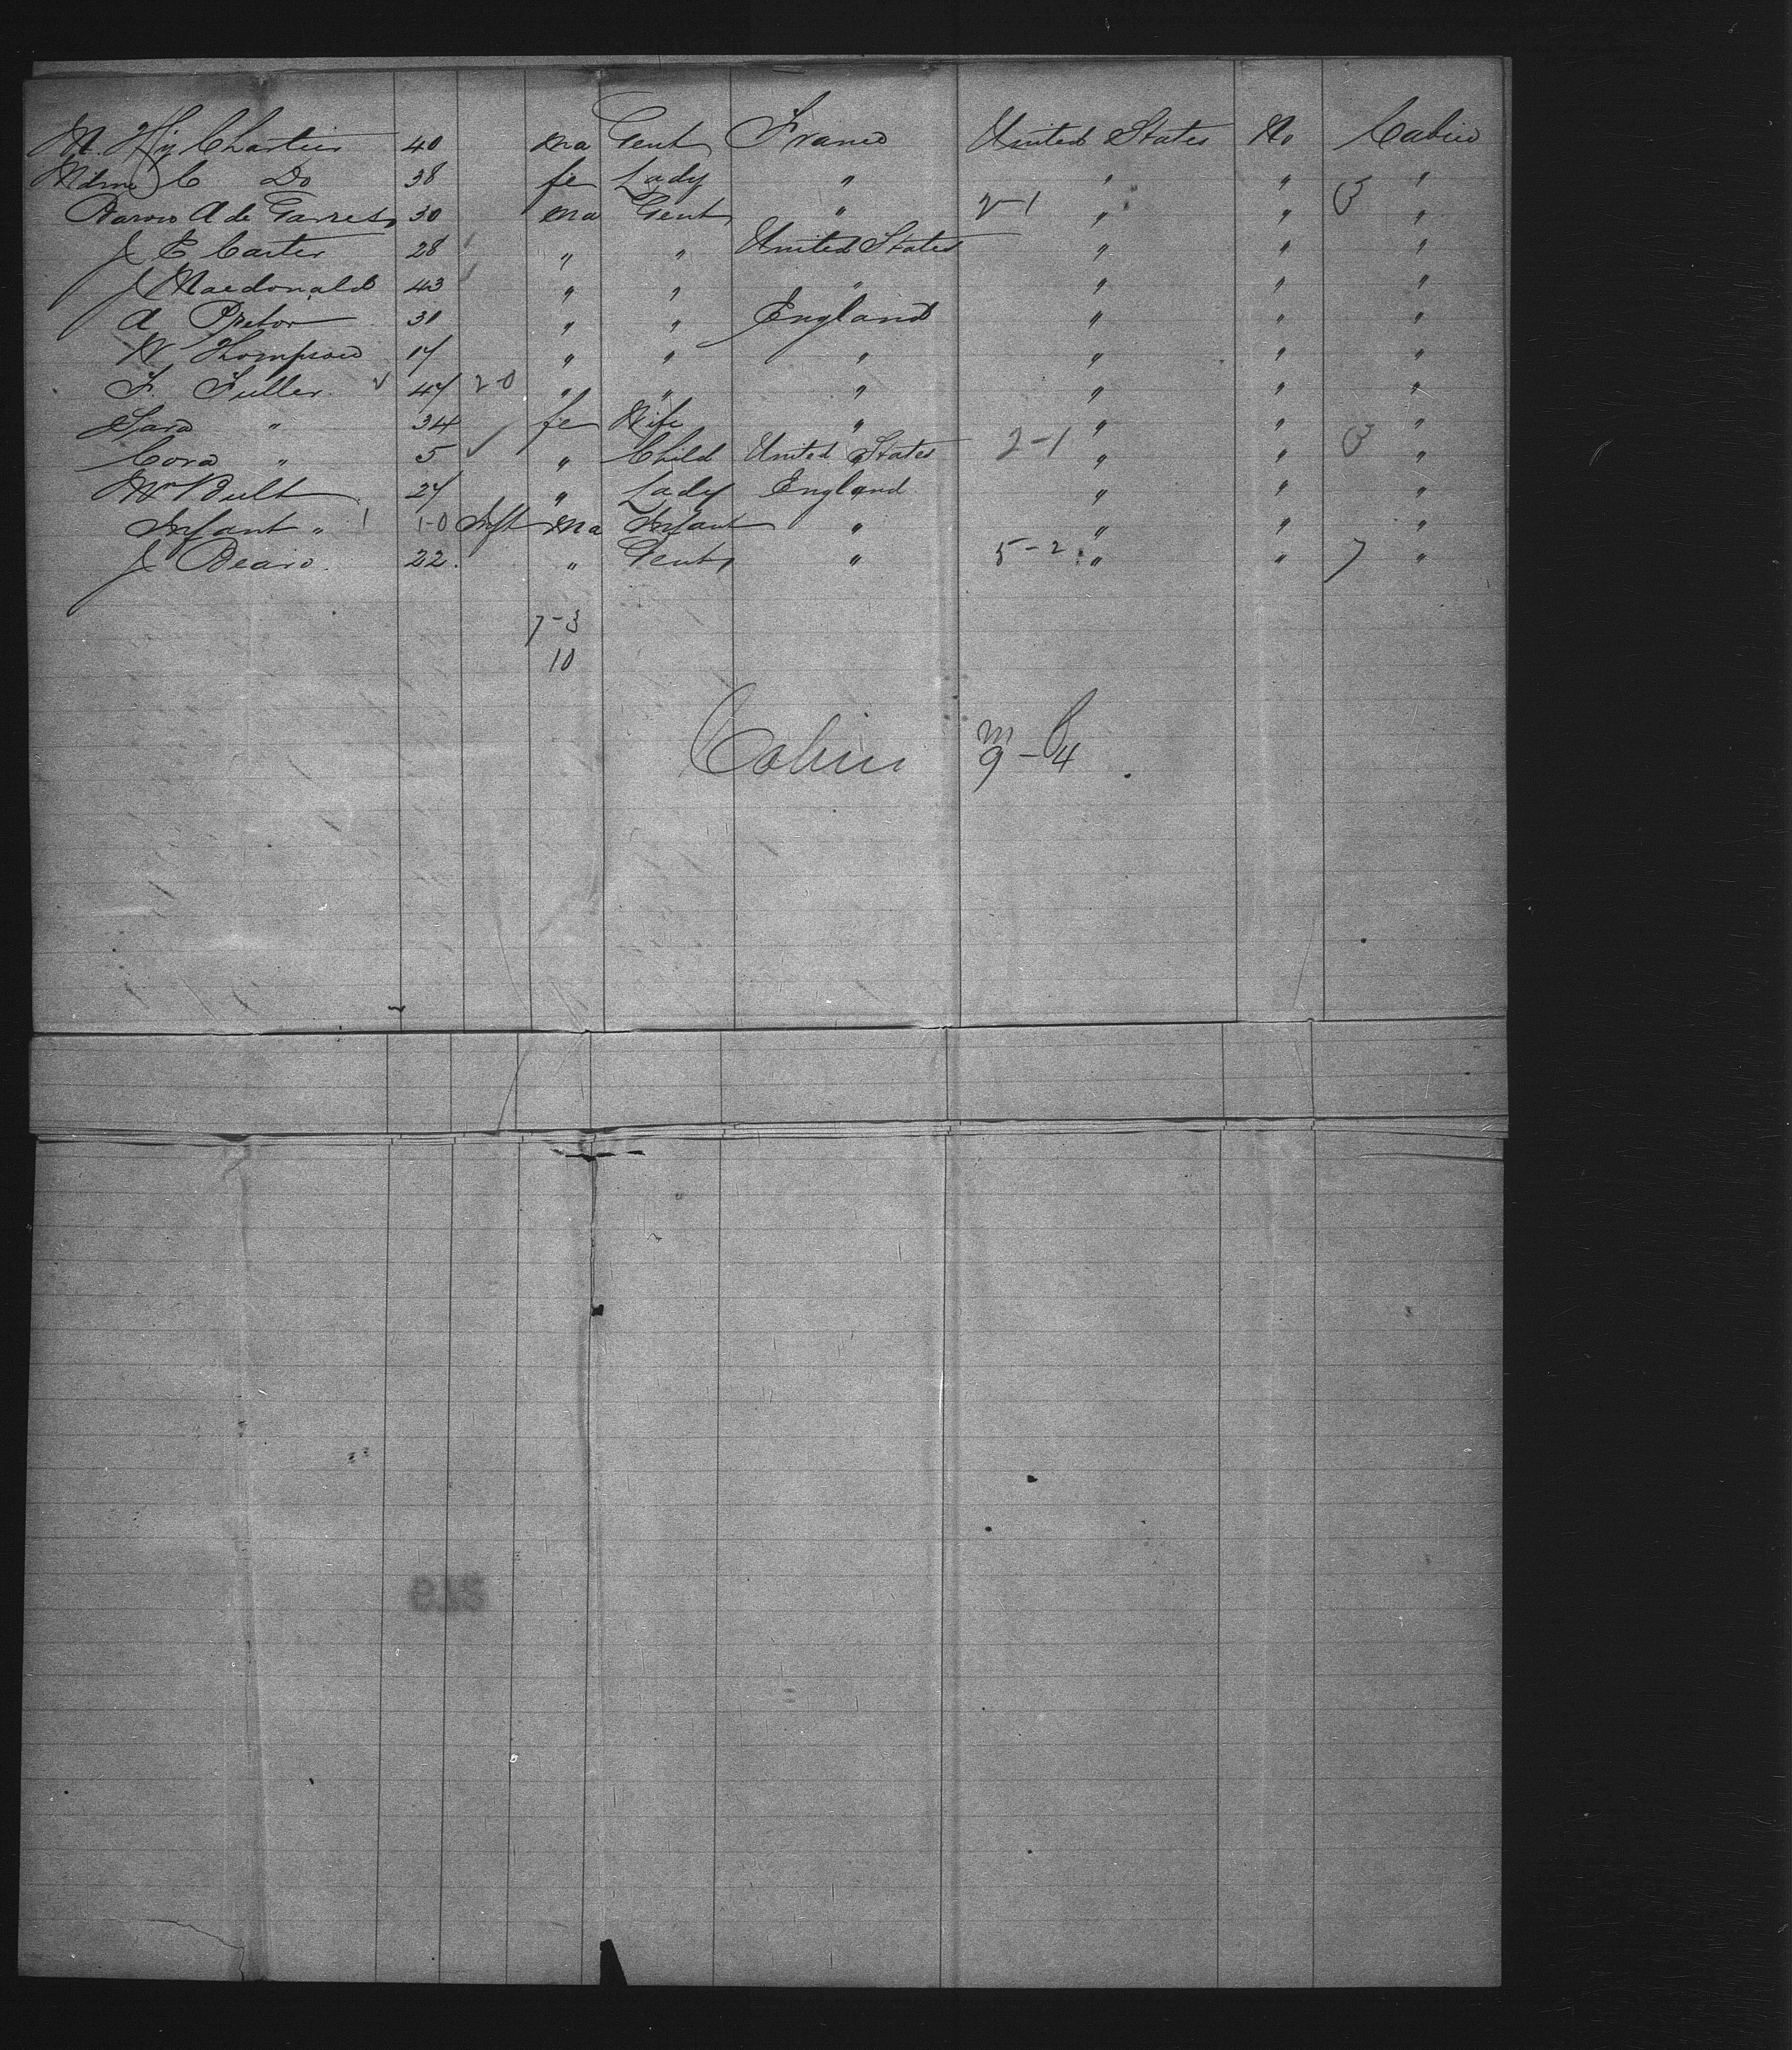 M. Hy Chartier 40 ma Gent France United States No Cabin
Mdme C Do 38 fe Lady " " " "
Baron A de Garrets 30 ma Gent " 2-1 " " 3 "
J E Carter 28 " " United States " " "
J Macdonald 43 " " " " " "
A Pretor 31 " " England " " "
W Thompson 17 " " " " " "
F. Fuller 47 2-0 " " " " " "
Sara " 34 fe Wife " " " "
Cora " 5 " Child United States 2-1 " " 3 "
Mrs Bult 27 " Lady England " " "
Infant " 1 1-0 Inft ma Infant " " " "
J. Bean 22. " Gent " 5-2 " " 7 "
7-3
10
Cabin m 9 - f 4